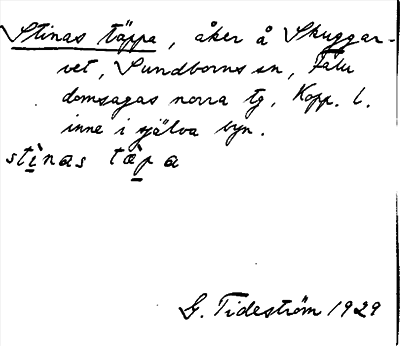 Stinas täppa, åker å Skuggar-
vet, Sundborns sn, Falu
domsagas norra tg, Kopp. l.
inne i själva byn.
stìnas tæ̀pa
G. Tideström 1929